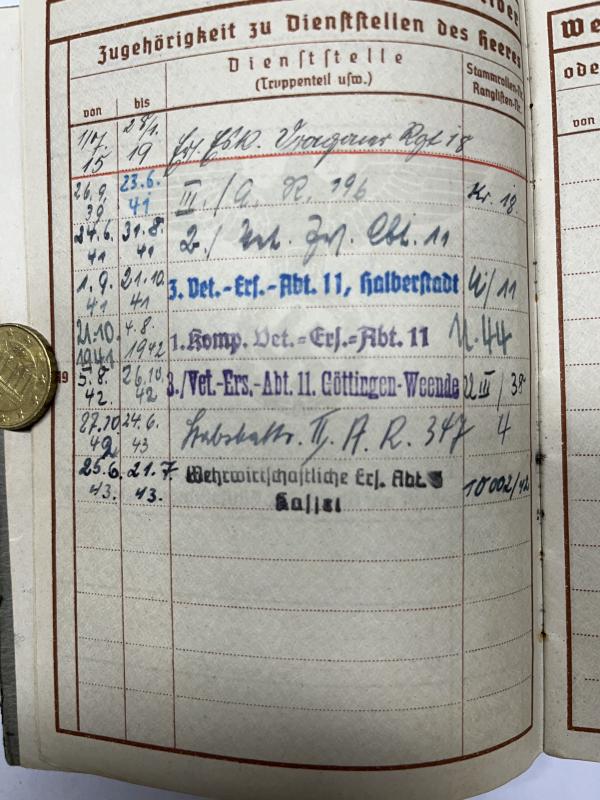 Zugehörigkeit zu Dienststellen des Heeres
von
bis
Dienststelle
(Truppenteil usw.)
Stammrollen-Nr.
Ranglisten-Nr.
15 19 Ers. Esk. Dragoner Rgt 18
26.9. 39 23.6. 41 III./A. R. 196 Kr. 18
24.6. 41 31.8. 41 2./Vet. Ers. Abt. 11
1.9. 41 21.10. 41 3. Vet.-Ers.-Abt. 11, Halberstadt
21.10. 1941 4.8. 1942 1. Komp. Vet.-Ers.-Abt. 11 U. 44
5.8. 42. 26.10. 42 3./Vet.-Ers.-Abt. 11. Göttingen-Weende 22 III/38
27.10 42 24.6. 43 Stabsbattr. II. A. R. 347 4
25.6. 43. 21.7. 43. Wehrwirtschaftliche Ers. Abt. 10002/42
Kassel
We
ode
von